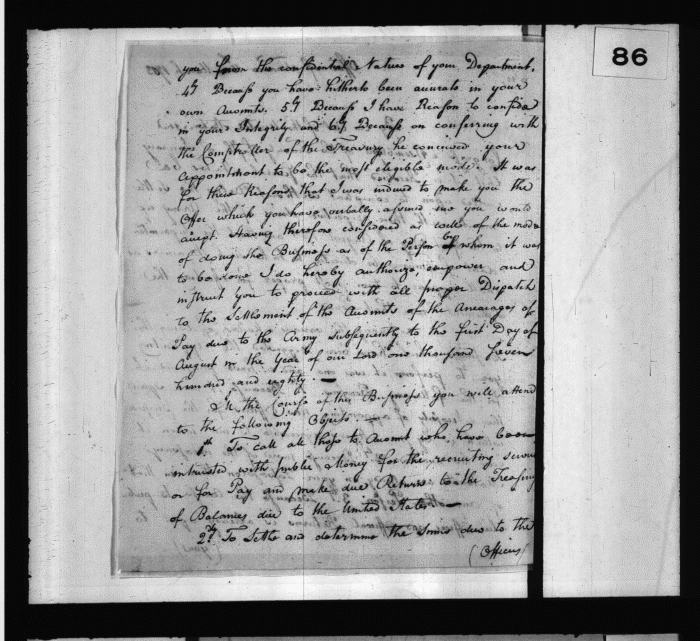 86
you from the confidential Nature of your Department.
4th Becauss you have hitherto been accurate in your
own Accounts. 5th Becauss I have Reason to confide
in your Integrity and 6th Becauss on conferring with
the Comptroller of the Treasury he conceived your
appointment to be the most eligible mode. It was
for these Reasons that I was induced to make you the
Offer which you have verbally assured me you would
accept. Having therefore considered as well of the mode
of doing the Business as of the Person by whom it was
to be done I do hereby authorize, empower and
instruct you to proceed with all proper Dispatch
to the Settlement of the Accounts of the Arrearages of
Pay due to the Army subsequently to the first Day of
August in the Year of our Lord one thousand Seven
hundred and eighty. —
In the Course of this Business you will attend
to the following Objects —
1st To call all those to Account who have been
intrusted with public Money for the recruiting service
or for Pay and make due Returns to the Treasury
of Balances due to the United States —
2d. To Settle and determine the Sums due to the
(Officers)